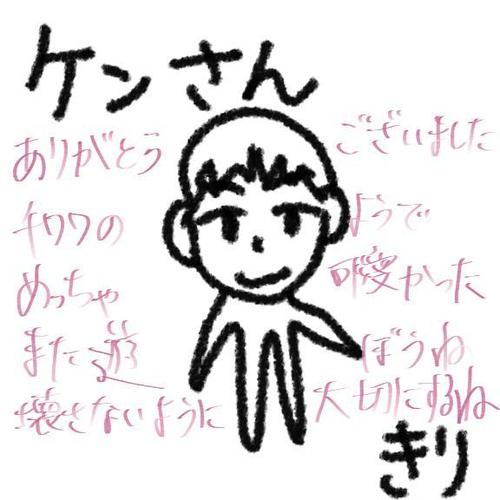 ケンさん
ありがとう ございました
チワワの ようで
めっちゃ 可愛かった
また遊 ぼうね
壊さないように 大切にするね
きり